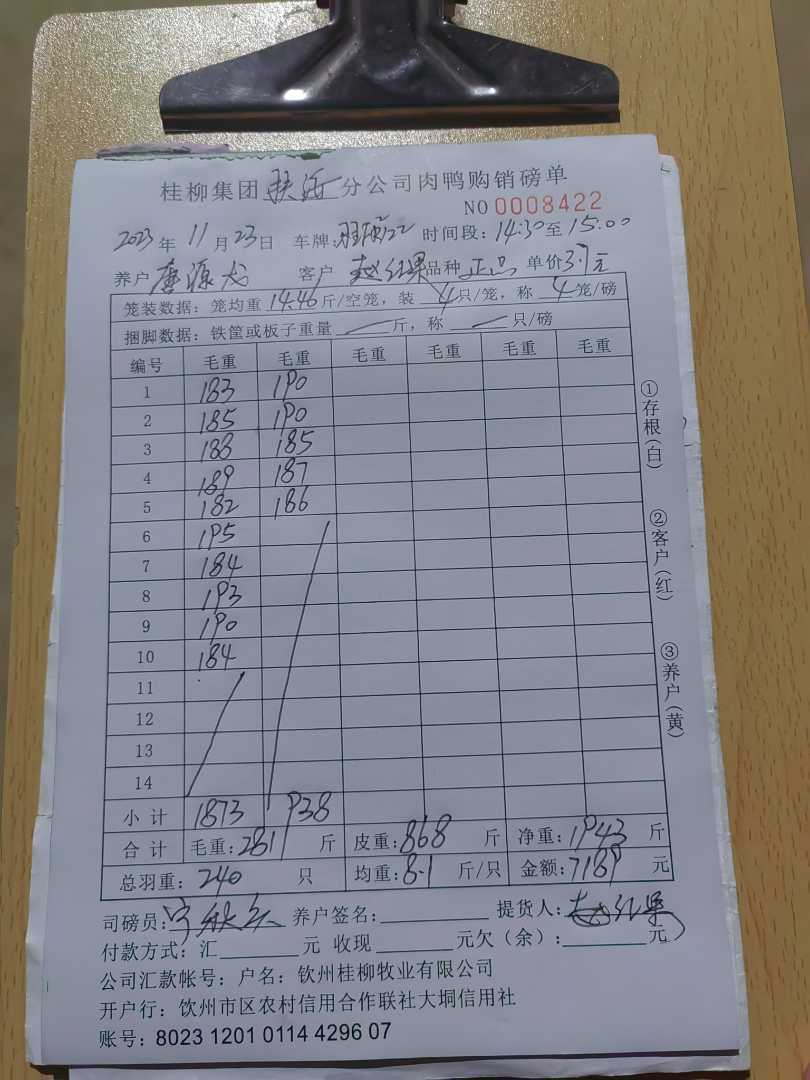 桂柳集团 分公司肉鸭购销磅单
NO 0008422
2023年 11月 23日 车牌: 时间段: 14:30至 15:00
养户 唐源龙 客户 赵红果 品种 正品 单价 3.7元
笼装数据: 笼均重 14.46斤/空笼, 装 4只/笼, 称 4笼/磅
捆脚数据: 铁筐或板子重量 — 斤, 称 — 只/磅
编号 毛重 毛重 毛重 毛重 毛重 毛重
1 183 190
2 185 190
3 188 185
4 189 187
5 182 186
6 195
7 184
8 193
9 190
10 184
11
12
13
14
小计 1873 938
合计 毛重: 2811 斤 皮重: 868 斤 净重: 1943 斤
总羽重: 240 只 均重: 8.1 斤/只 金额: 7189 元
司磅员: 养户签名: 提货人: 赵红果
付款方式: 汇 元 收现 元欠(余): 元
公司汇款帐号: 户名: 钦州桂柳牧业有限公司
开户行: 饮州市区农村信用合作联社大垌信用社
账号: 8023 1201 0114 4296 07
①存根(白)
②客户(红)
③养户(黄)